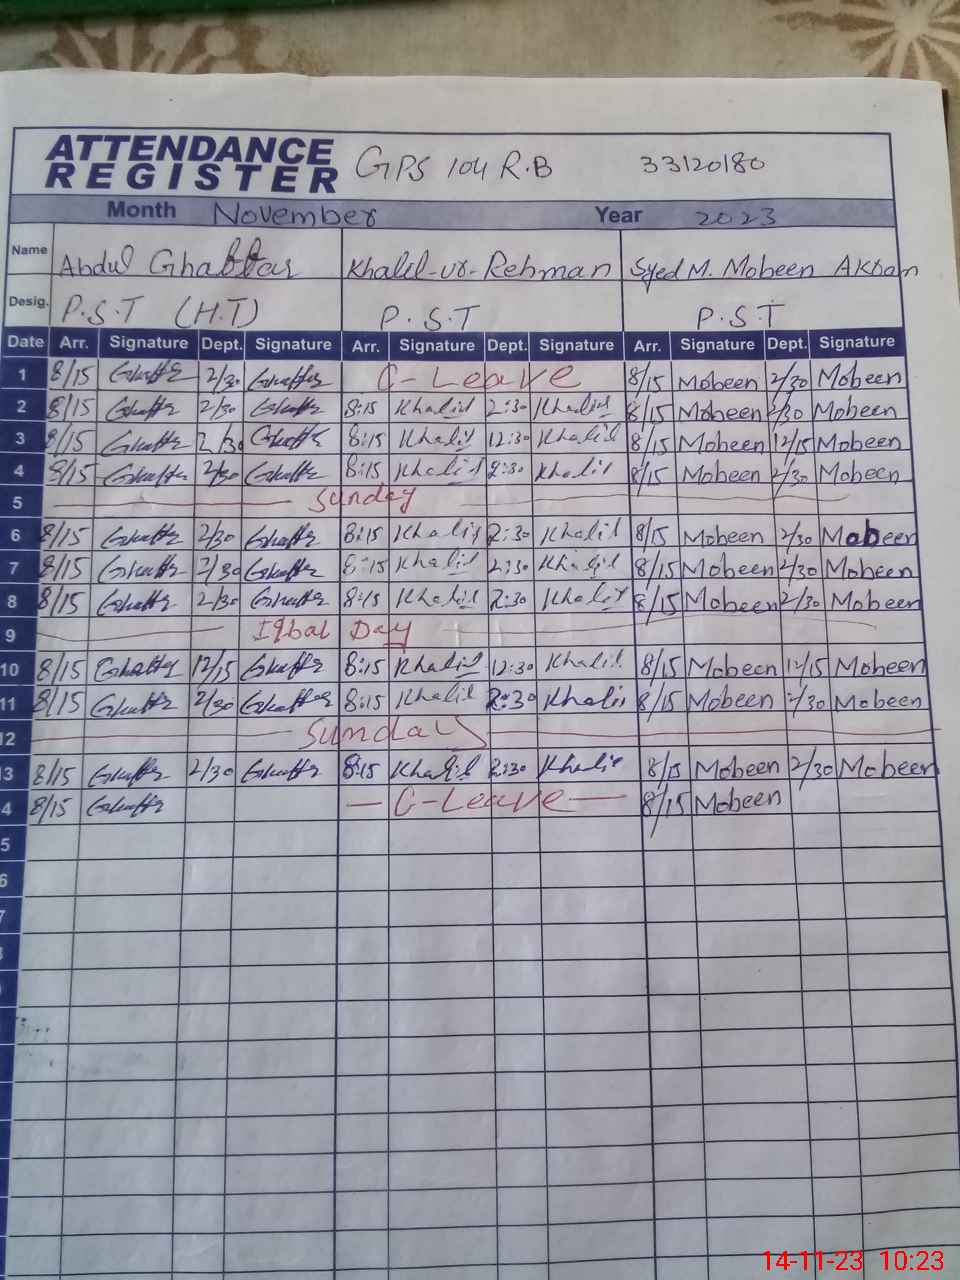 ATTENDANCE
REGISTER GPS 104 R.B 33120180
Month November Year 2023
Name Abdul Ghaffar Khalil-ur-Rehman Syed M. Mobeen Akram
Desig. P.S.T (H.T) P.S.T P.S.T
Date Arr. Signature Dept. Signature Arr. Signature Dept. Signature Arr. Signature Dept. Signature
1 8/15 Ghaffar 2/30 Ghaffar C-Leave 8/15 Mobeen 2/30 Mobeen
2 8/15 Ghaffar 2/30 Ghaffar 8:15 Khalil 2:30 Khalil 8/15 Mobeen 2/30 Mobeen
3 8/15 Ghaffar 2/30 Ghaffar 8:15 Khalil 12:30 Khalil 8/15 Mobeen 12/15 Mobeen
4 8/15 Ghaffar 2/30 Ghaffar 8:15 Khalil 2:30 Khalil 8/15 Mobeen 2/30 Mobeen
5 Sunday
6 8/15 Ghaffar 2/30 Ghaffar 8:15 Khalil 2:30 Khalil 8/15 Mobeen 2/30 Mobeen
7 8/15 Ghaffar 2/30 Ghaffar 8:15 Khalil 2:30 Khalil 8/15 Mobeen 2/30 Mobeen
8 8/15 Ghaffar 2/30 Ghaffar 8:15 Khalil 2:30 Khalil 8/15 Mobeen 2/30 Mobeen
9 Iqbal Day
10 8/15 Ghaffar 12/15 Ghaffar 8:15 Khalil 12:30 Khalil 8/15 Mobeen 12/15 Mobeen
11 8/15 Ghaffar 2/30 Ghaffar 8:15 Khalil 2:30 Khalil 8/15 Mobeen 2/30 Mobeen
12 Sunday
13 8/15 Ghaffar 2/30 Ghaffar 8:15 Khalil 2:30 Khalil 8/15 Mobeen 2/30 Mobeen
4 8/15 Ghaffar — C-Leave — 8/15 Mobeen
5
6
7
14-11-23 10:23